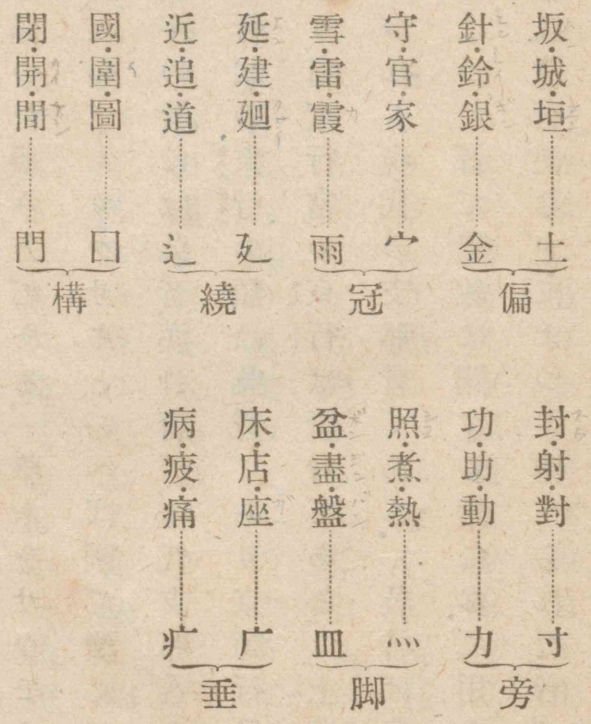 坂・城・垣………土
針・鈴・銀………金
偏
守・官・家………宀
雪・雷・霞………雨
冠
延・建・廻………廴
近・追・道………辶
繞
國・圍・圖………囗
閉・開・間………門
構
封・射・對………寸
功・助・動………力
旁
照・煮・熱………灬
盆・盡・盤………皿
脚
床・店・座………广
病・疲・痛………疒
垂